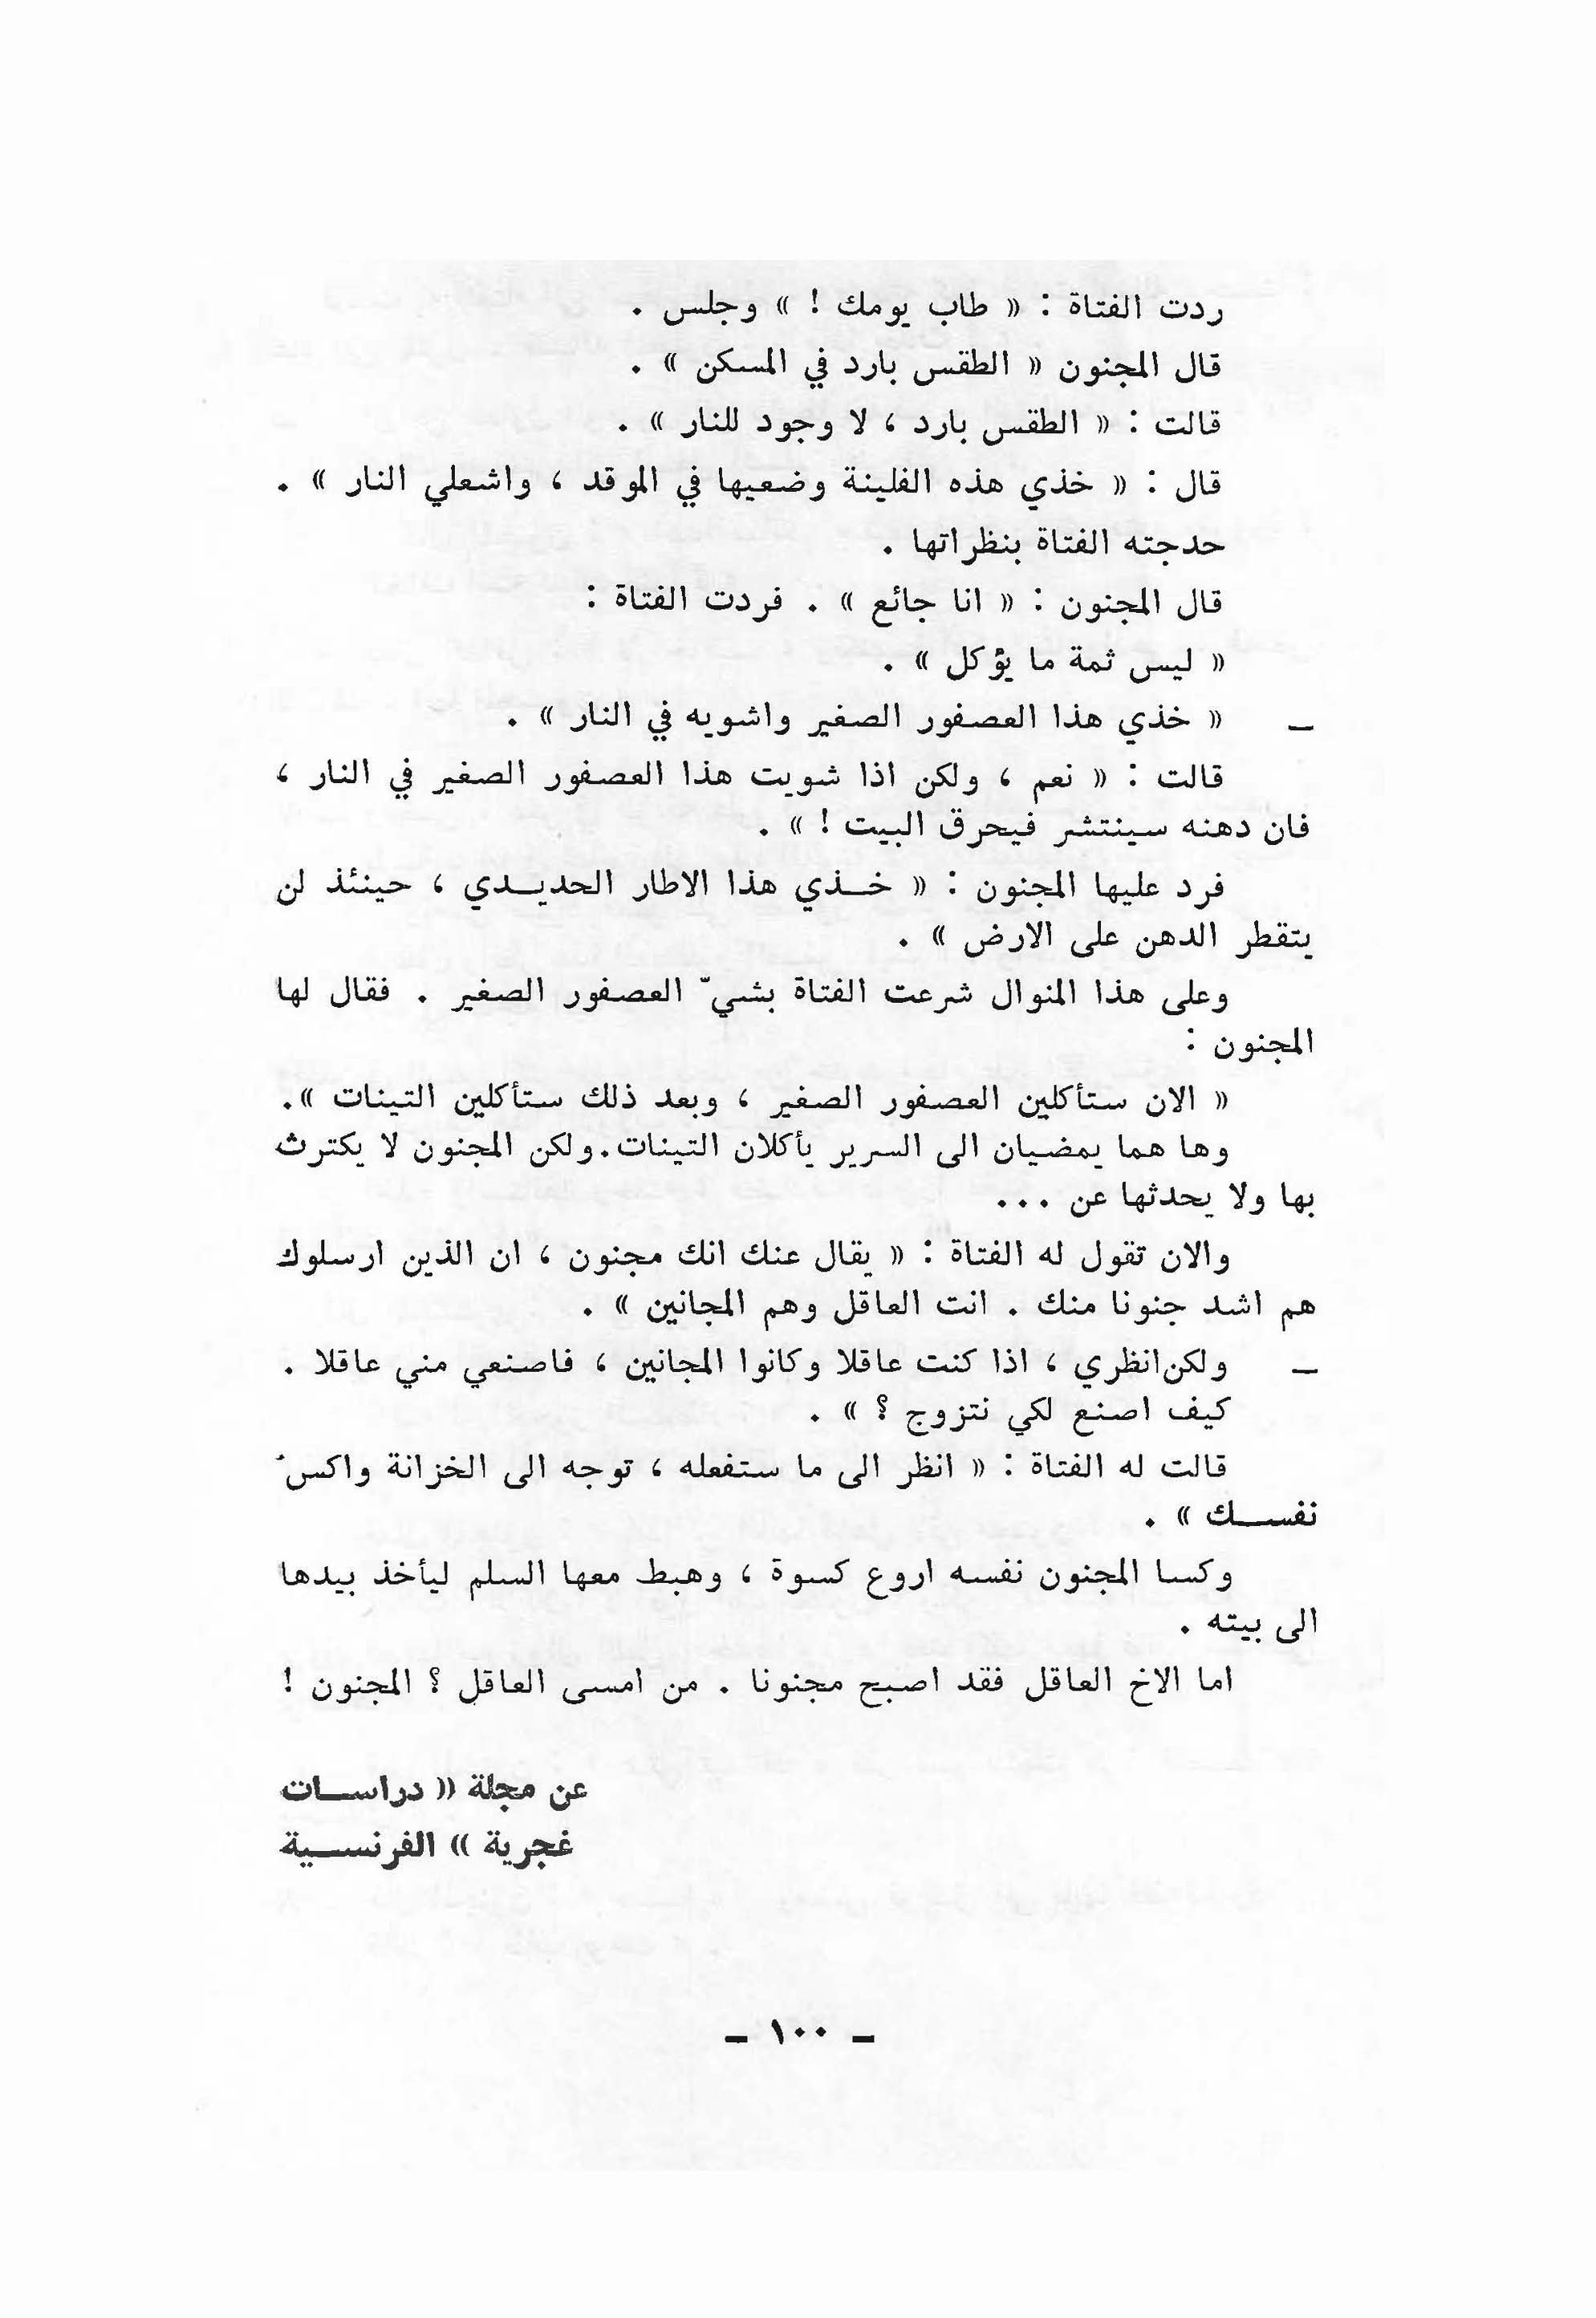 ردت الفتاة : « طاب يومك ! » وجلس .
قال المجنون « الطقس بارد في المسكن » .
قالت : « الطقس بارد ، لا وجود للنار » .
قال : « خذي هذه الفلينة وضعيها في الموقد ، واشعلي النار » .
حدجته الفتاة بنظراتها .
قال المجنون : « انا جائع » . فردت الفتاة :
« ليس ثمة ما يؤكل » .
– « خذي هذا العصفور الصغير واشويه في النار » .
قالت : « نعم ، ولكن اذا شويت هذا العصفور الصغير في النار ،
فان دهنه سينتشر فيحرق البيت ! » .
فرد عليها المجنون : « خـــذي هذا الاطار الحديـــدي ، حينئذ لن
يتقطر الدهن على الارض » .
وعلى هذا المنوال شرعت الفتاة بشيّ العصفور الصغير . فقال لها
المجنون :
« الان ستأكلين العصفور الصغير ، وبعد ذلك ستأكلين التينات ».
وها هما يمضيان الى السرير يأكلان التينات.ولكن المجنون لا يكترث
بها ولا يحدثها عن ...
والان تقول له الفتاة : « يقال عنك انك مجنون ، ان الذين ارسلوك
هم اشد جنونا منك . انت العاقل وهم المجانين » .
– ولكن انظري ، اذا كنت عاقلا وكانوا المجانين ، فاصنعي مني عاقلا .
كيف اصنع لكي نتزوج ؟ » .
قالت له الفتاة : « انظر الى ما ستفعله ، توجه الى الخزانة واكسُ
نفســـك » .
وكسا المجنون نفسه اروع كسوة ، وهبط معها السلم ليأخذ بيدها
الى بيته .
اما الاخ العاقل فقد اصبح مجنونا . من امسى العاقل ؟ المجنون !
عن مجلة « دراســـات
غجرية » الفرنســـية
– ١٠٠ –